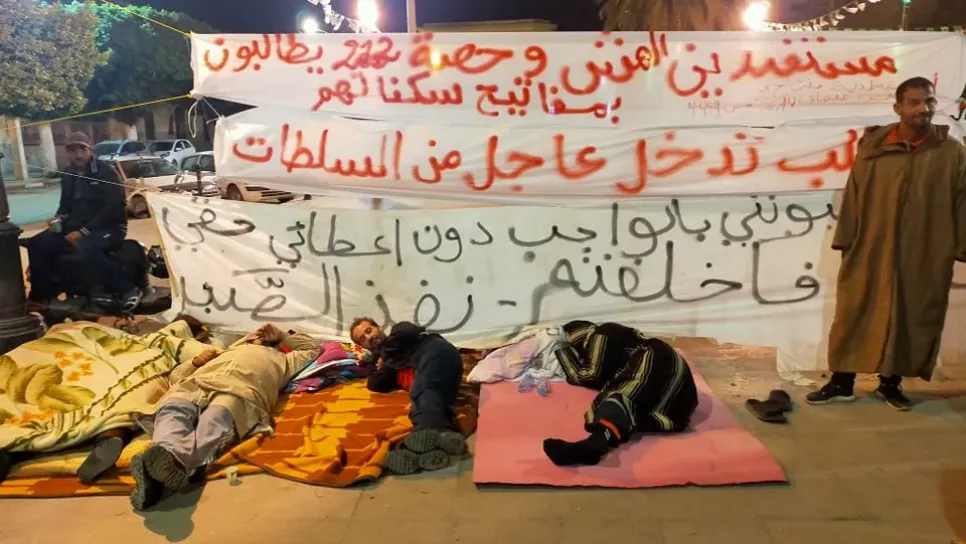 مستفيدين الهشش وحصة 212 يطالبون
بمفاتيح سكناتهم
لب تدخل عاجل من السلطات
بونني بالواجب دون إعطائي حقي
فأخلفتم - نفذ الصّبر